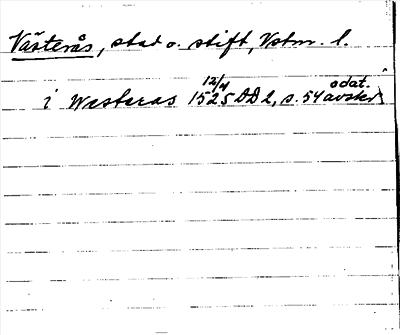 Västerås, stad o. stift, Vstm. l.
i Westeras 12/4 1525 DD 2, s. 54 odat. avskr